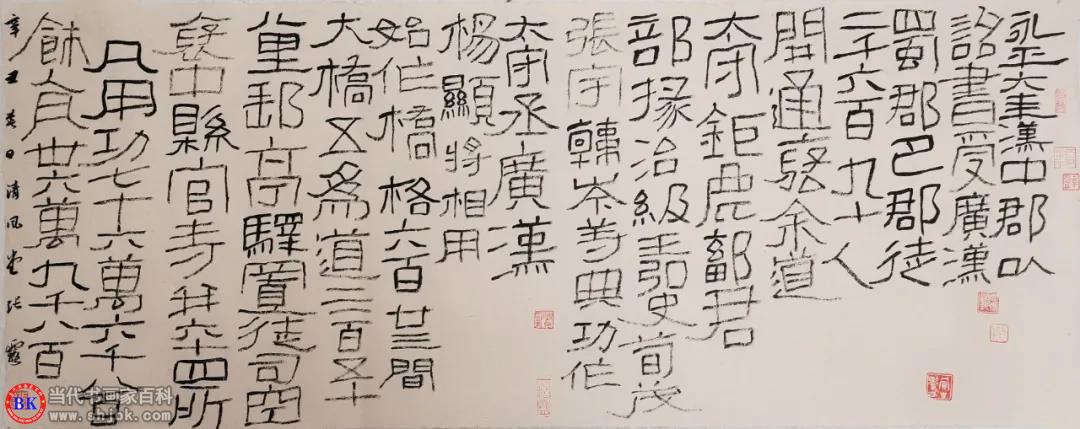 永平六年漢中郡以
詔書受廣漢
蜀郡巴郡徒
二千六百九十人
開通褒余道
太守鉅鹿鄐君
部掾治級王弘史荀茂
張宇韓岑等典功作
太守丞廣漢
楊顯將相用
始作橋格六百廿三間
大橋五為道二百五十
八里郵亭驛置徒司空
褒中縣官寺并六十四所
凡用功七十六萬六千八百
餘人卅六萬九千八百
辛丑春日清風堂張
BK
当代书画家百科
www.shjbk.com